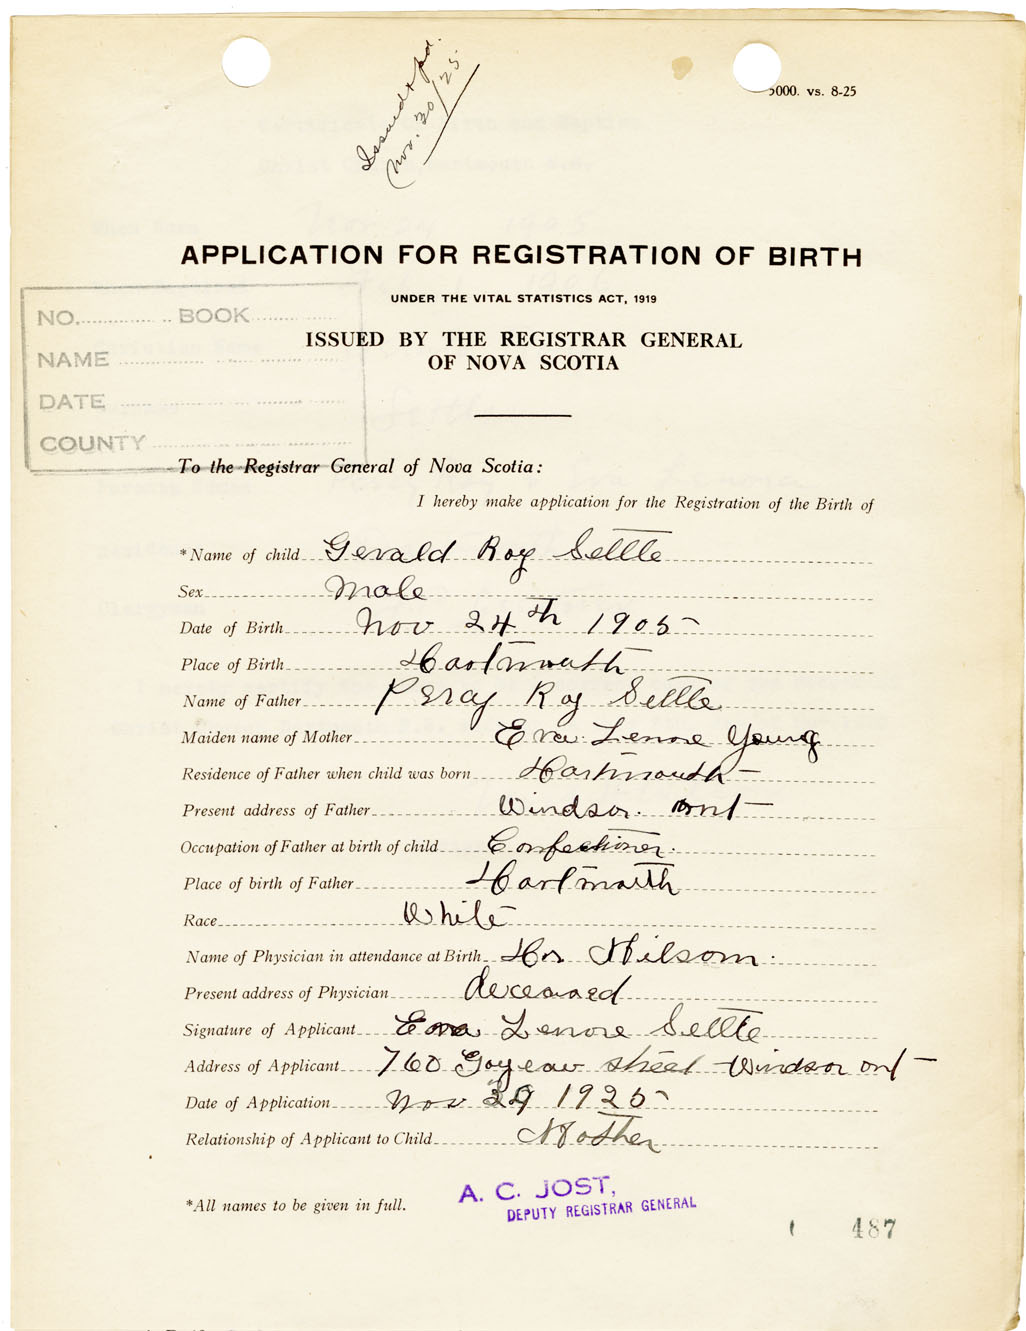 Issued & pd.
Nov. 30/25
5000. vs. 8-25
APPLICATION FOR REGISTRATION OF BIRTH
UNDER THE VITAL STATISTICS ACT, 1919
ISSUED BY THE REGISTRAR GENERAL
OF NOVA SCOTIA
NO. BOOK
NAME
DATE
COUNTY
To the Registrar General of Nova Scotia:
I hereby make application for the Registration of the Birth of
*Name of child Gerald Roy Settle
Sex Male
Date of Birth Nov 24th 1905
Place of Birth Dartmouth
Name of Father Percy Roy Settle
Maiden name of Mother Eva Lenore Young
Residence of Father when child was born Dartmouth
Present address of Father Windsor. Ont
Occupation of Father at birth of child Confectioner.
Place of birth of Father Dartmouth
Race White
Name of Physician in attendance at Birth Dr Milsom.
Present address of Physician deceased
Signature of Applicant Eva Lenore Settle
Address of Applicant 760 Goyeau street Windsor ont
Date of Application Nov 1925
Relationship of Applicant to Child Mother
*All names to be given in full.
A. C. JOST,
DEPUTY REGISTRAR GENERAL
487